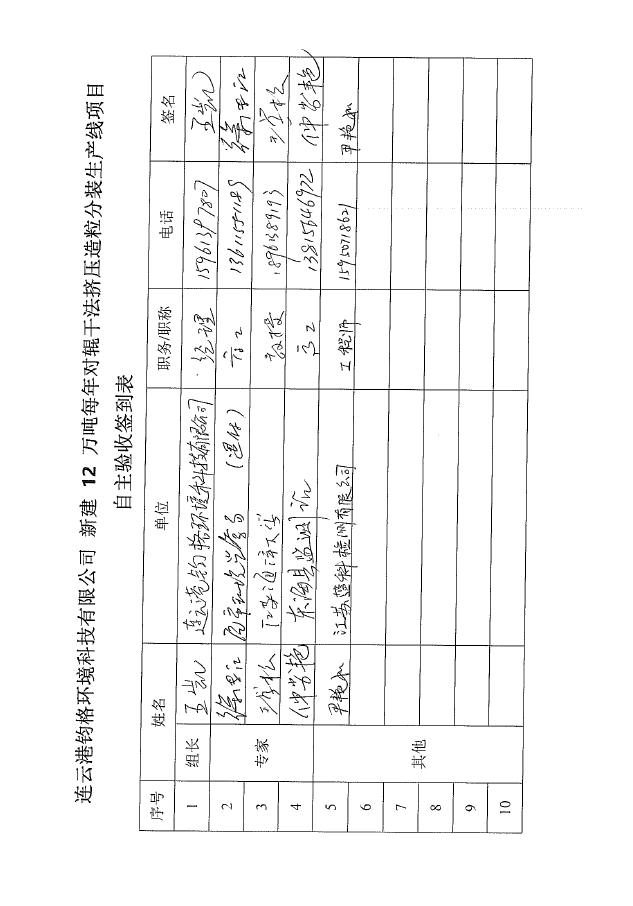 连云港钧格环境科技有限公司 新建 12 万吨每年对辊干法挤压造粒分装生产线项目
自主验收签到表
序号 姓名 单位 职务/职称 电话 签名
1 组长 王凯 连云港钧格环境科技有限公司 经理 15961397807 王凯
2 专家 (退休) 高工 13611551189
3 江苏海洋大学 教授 18961389193
4 仲崇艳 东海县监测站 高工 13815646922 仲崇艳
5 其他 尹艳 江苏蓝科检测有限公司 工程师 15950718621 尹艳
6
7
8
9
10